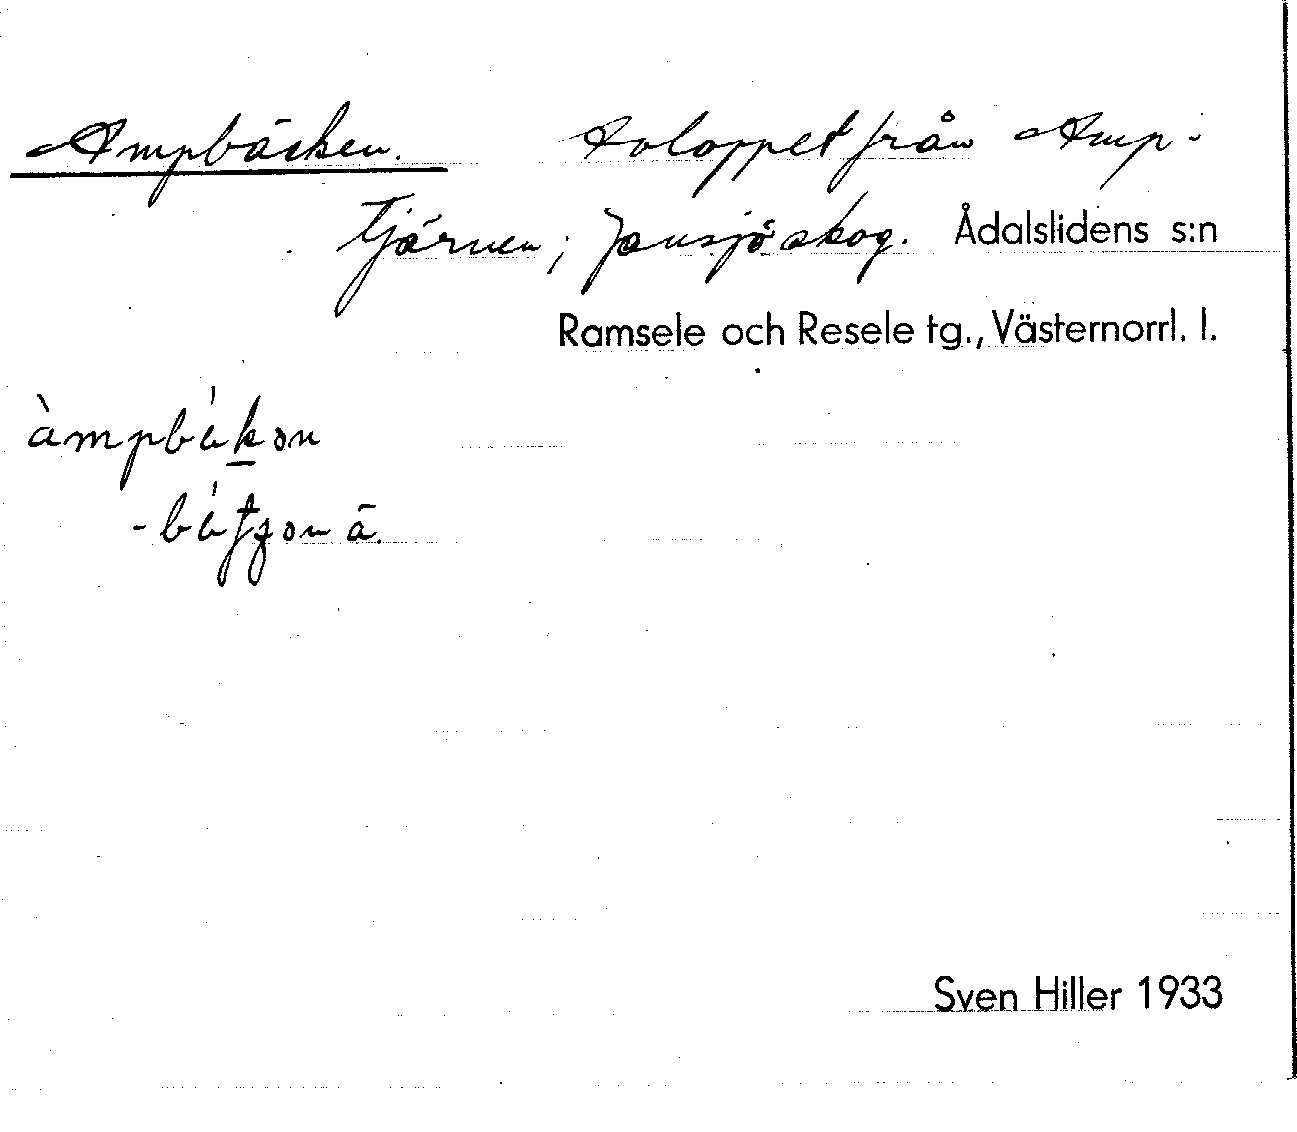 Ampbäcken. Avloppet från Amp-
tjärnen; Jansjö skog. Ådalslidens s:n
Ramsele och Resele tg., Västernorrl. l.
àmpbákən
-bátʒənä.
Sven Hiller 1933